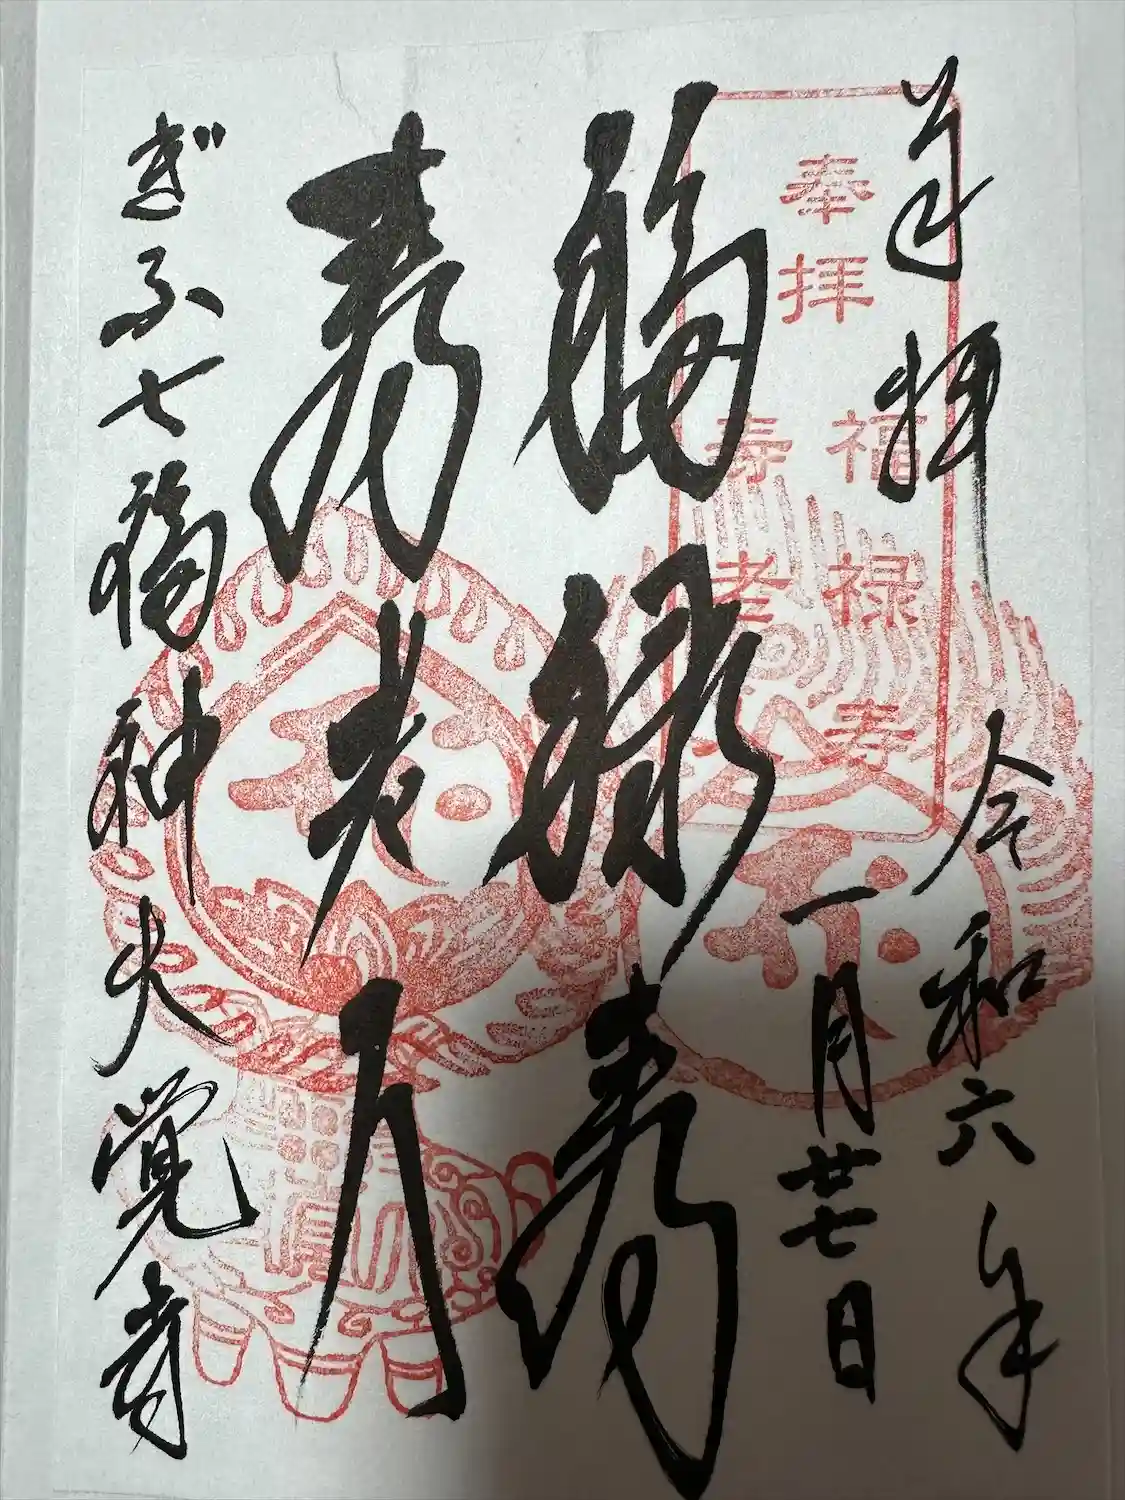 奉拝　令和六年
一月廿七日
奉拝
福禄寿
寿老人
福禄寿
寿老人
ぎふ七福神大覚寺